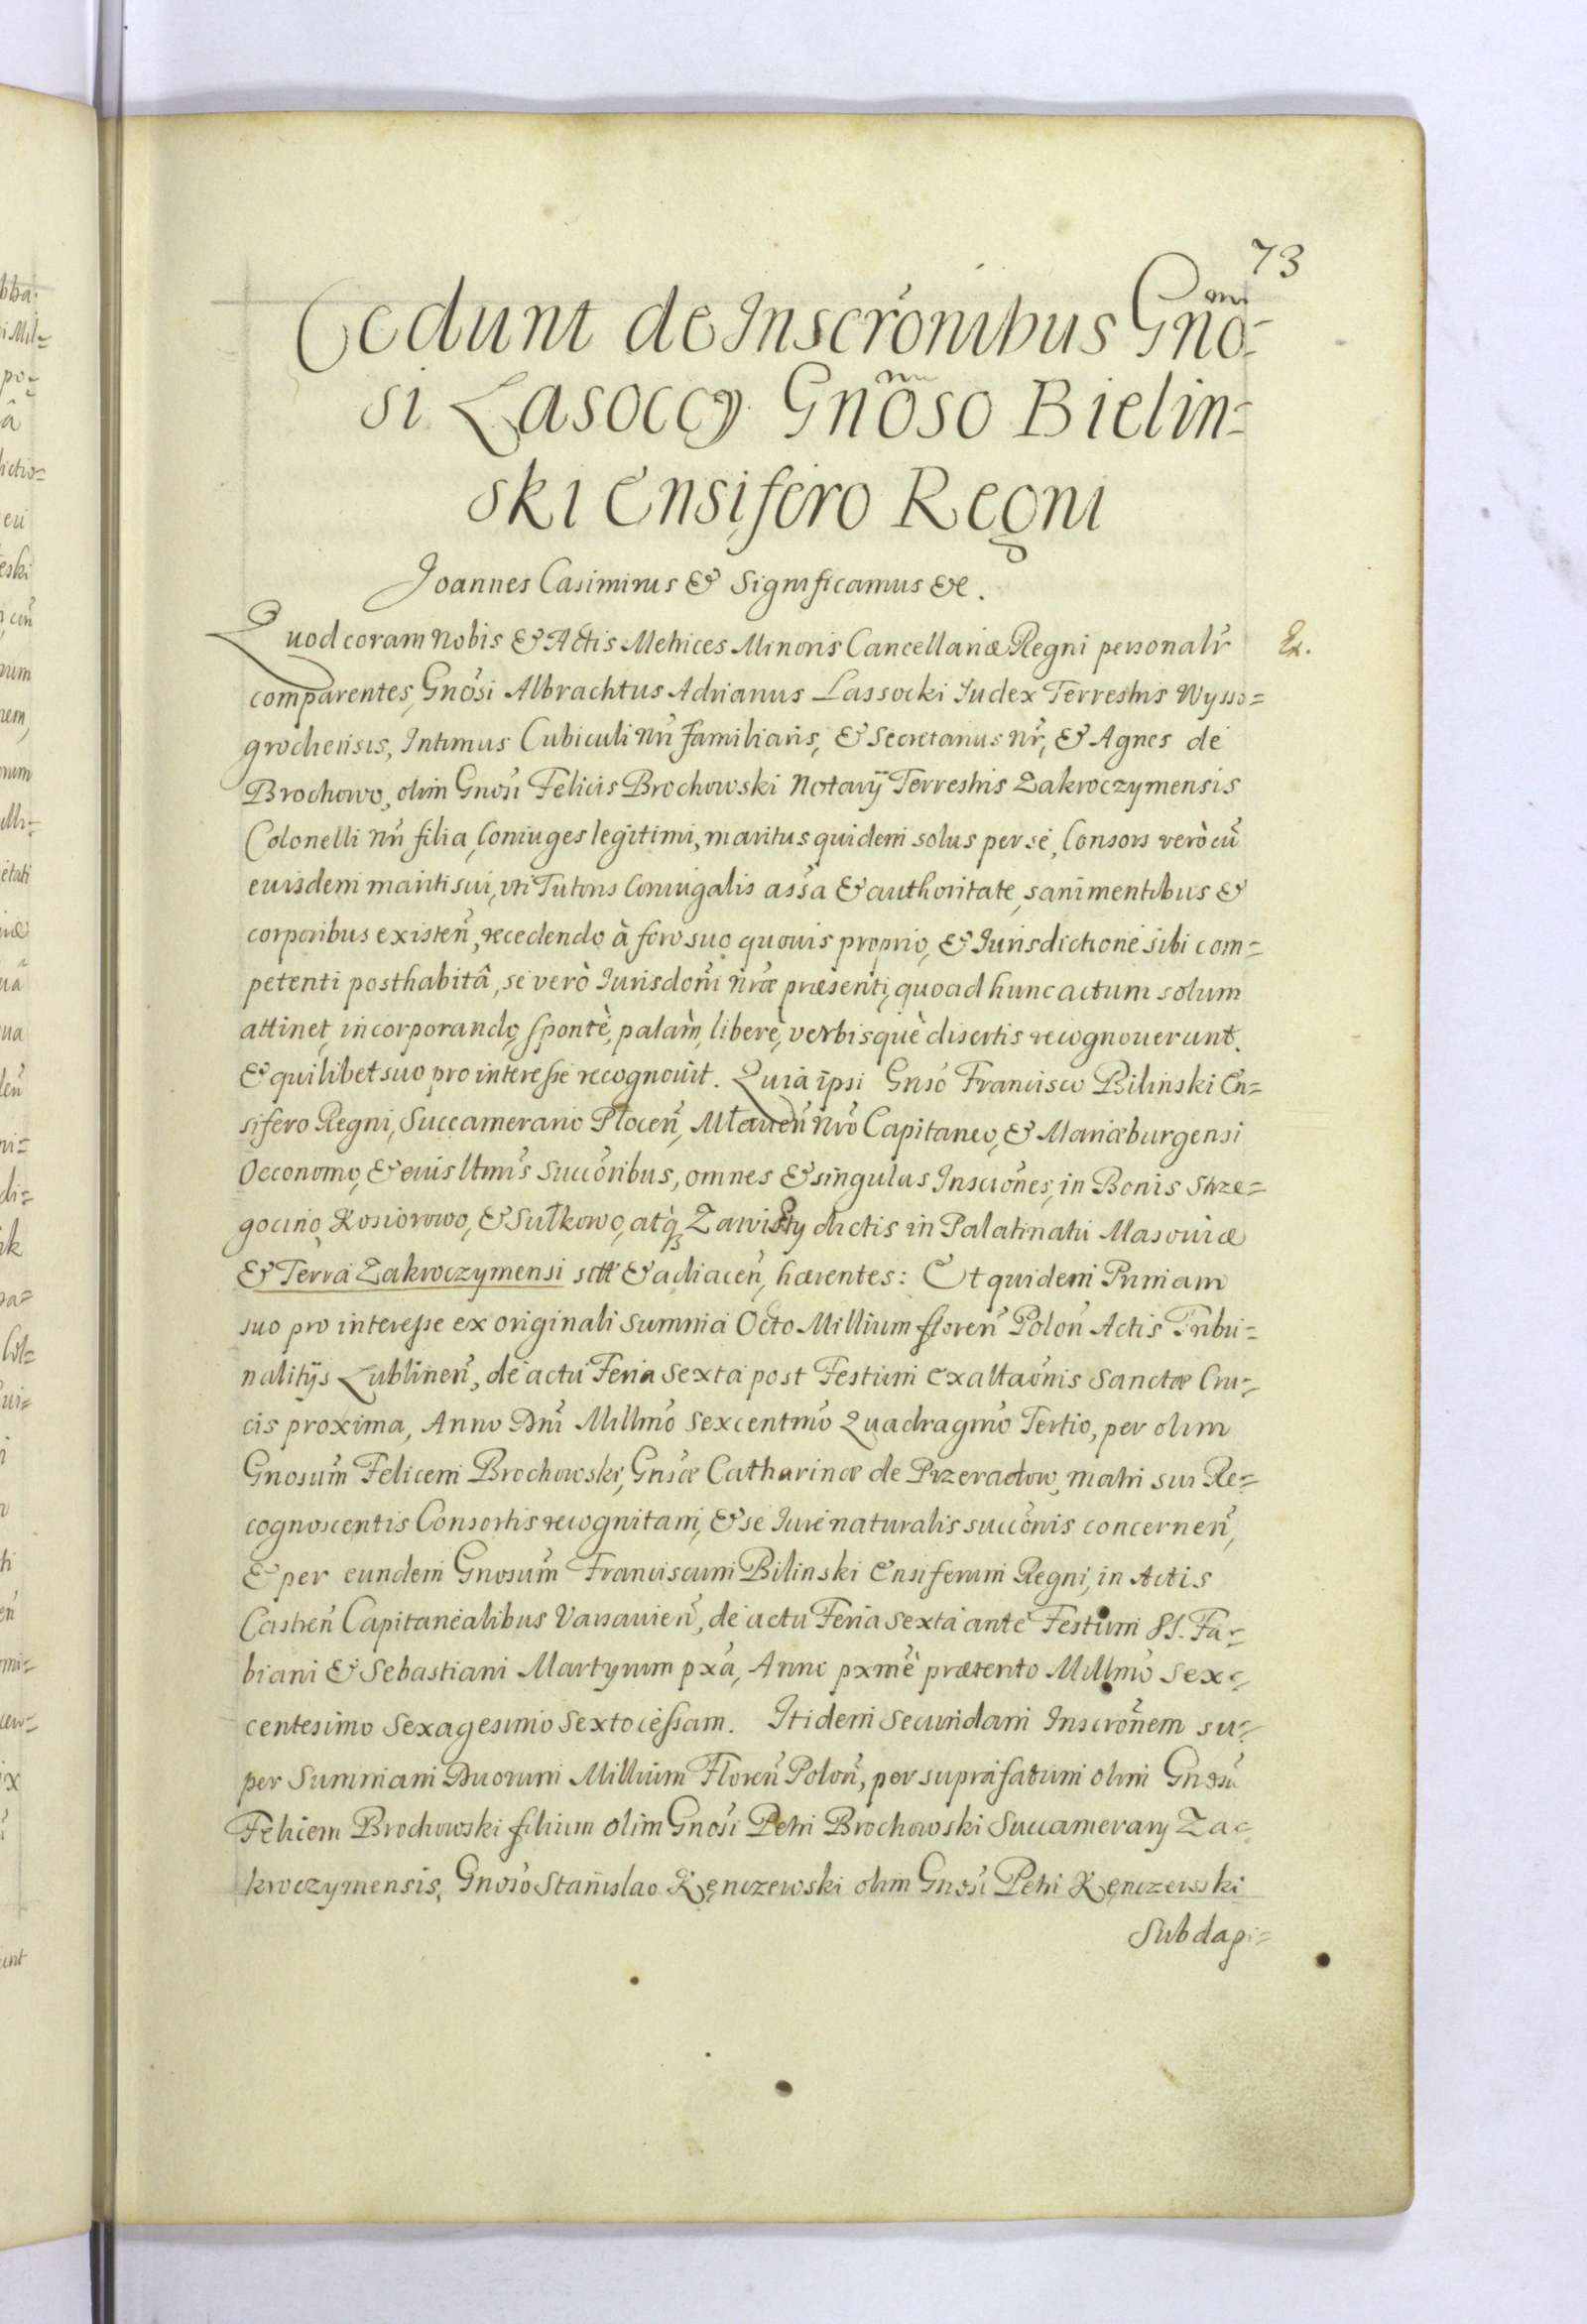 73
Cedunt de Inscrõnibus Gnõ=
si Lasoccy Gnõso Bielin=
ski Ensifero Regni
Joannes Casimirus & Significamus &c.
Quod coram nobis & Actis Metrices Minoris Cancellariæ Regni personalr̃
Ex.
comparentes, Gnõsi Albrachtus Adrianus Lassocki Iudex Terrestris Wysso=
grodiensis, Intimus Cubiculi nr̃i familiaris, & Secretarius nr̃, & Agnes de
Brochowo, olim Gnosi Felicis Brochowski Notarij Terrestris Zakroczymensis
Colonelli nr̃i filia, Coniuges legitimi, maritus quidem solus per se, Consors verò cũ
euisdem mariti sui, uti Tutoris Coniugalis assã & authoritate, sani mentibus &
corporibus existeñ, recedendo à foro suo quouis proprio, & Iurisdictione sibi com=
petenti posthabitâ, se verò Iurisdoñi nr̃æ præsenti, quoad hunc actum solum
attinet, incorporando, spontè, palàm, liberè, verbisquè disertis recognouerunt.
& quilibet suo pro interesse recognouit. Quia ipsi Gnsõ Francisco Bilinski En=
sifero Regni, Succamerario Płoceñ, Mławeñ nr̃o Capitaneo, & Mariæburgensi
Oeconomo, & euis ltmĩs succõribus, omnes & singulas Inscrõnes, in Bonis Strze=
gocino, Kosiorowo, & Sułkowo, atq̃ Zawisty dictis in Palatinatu Masouiæ
& Terra Zakroczymensi sitt & adiaceñ, hærentes: Et quidem Primam
suo pro interesse ex originali summa Octo Millium floreñ Poloñ Actis Tribu=
nalitijs Lublineñ, de actu Feria sexta post Festum Exaltaõnis Sanctæ Cru=
cis proxima, Anno Dñi Millmõ Sexcentmõ Quadragmõ Tertio, per olim
Gnosum̃ Felicem Brochowski, Gnsæ Catharinæ de Przeradow, matri sui Re=
cognoscentis Consortis recognitam, & se Iure naturalis succõnis concerneñ,
& per eundem Gnosum̃ Franciscum Bilinski Ensiferum Regni, in Actis
Castreñ Capitanealibus Varsauieñ, de actu Feria sexta ante Festum SS. Fa=
biani & Sebastiani Martyrum pxã, Anno pxmè præterito Millmõ Sex=
centesimo Sexagesimo Sexto cessam. Itidem Secundam Inscrõnem su=
per Summam Duorum Millium Floreñ Poloñ, per suprafatum olim Gnosũ
Felicem Brochowski filium olim Gnosi Petri Brochowski Succamerarij Za=
kroczymensis, Gnosõ Stanislao Kęnczewski olim Gnosi Petri Kęnczewski
Subdapi=